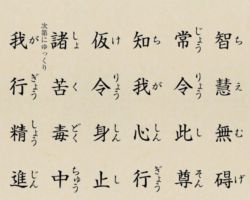 智慧無碍
ちえむげ
常令此尊
じょうりょうしそん
知我心行
ちがしんぎょう
仮令身止
けりょうしんし
諸苦毒中
しょくどくちゅう
次第にゆっくり
我行精進
がぎょうしょうじん